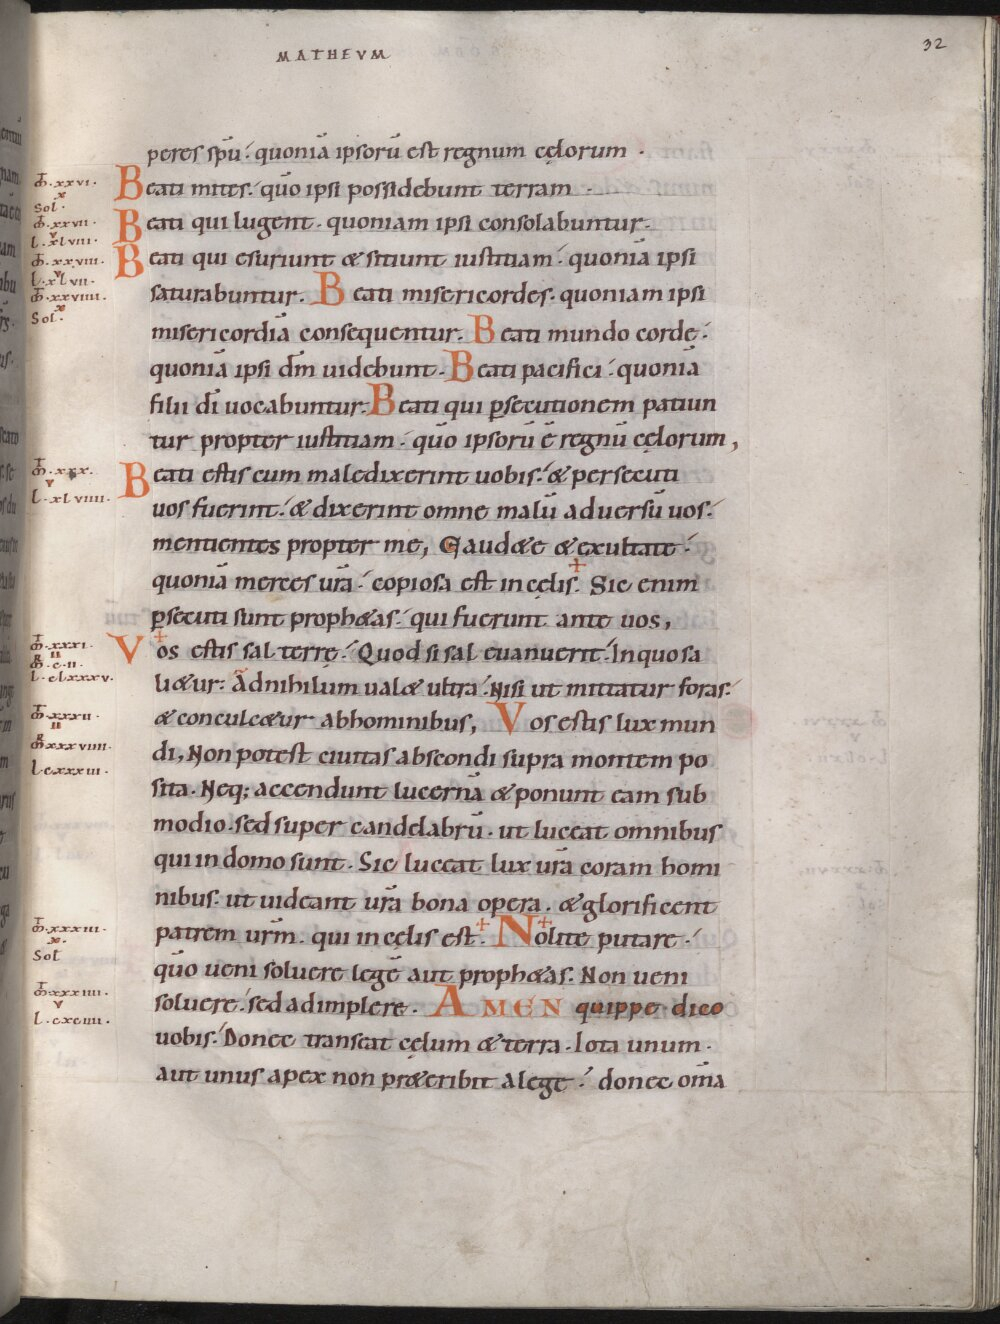 MATHEVM
32
peres spū· quoniā ipsorū est regnum cęlorum ·
Beati mites· quō ipsi possidebunt terram ·
Beati qui lugent· quoniam ipsi consolabuntur·
Beati qui esuriunt & sitiunt iustitiam· quoniā ipsi
saturabuntur. Beati misericordes· quoniam ipsi
misericordiā consequentur. Beati mundo corde·
quoniā ipsi dm̄ uidebunt. Beati pacifici· quoniā
filii dī uocabuntur. Beati qui ꝑsecutionem patiun
tur propter iustitiam· quō ipsorū ē regnū cęlorum,
Beati estis cum maledixerint uobis· & persecuti
uos fuerint· & dixerint omne malū aduersū uos·
mentientes propter me, Gaud&e & exultate·
quoniā merces ur̄a· copiosa est in cęlis. Sic enim
ꝑsecuti sunt proph&as· qui fuerunt ante uos,
Vos estis sal terrę· Quod si sal euanuerit· In quo sa
li&ur· Ad nihilum ual& ultra· Nisi ut mittatur foras·
& conculc&ur ab hominibus, Vos estis lux mun
di, Non potest ciuitas abscondi supra montem po
sita. Neq; accendunt lucernā & ponunt eam sub
modio. sed super candelabrū. ut luceat omnibus
qui in domo sunt. Sic luceat lux ur̄a coram homi
nibus· ut uideant ur̄a bona opera. & glorificent
patrem urm̄. qui in cęlis est. Nolite putare·
quō ueni soluere legē aut proph&as. Non ueni
soluere· sed adimplere. AMEN quippe dico
uobis· Donec transeat cęlum & terra· Iota unum·
aut unus apex non pr&eribit a lege· donec om̄a
xxvi.
x
Sol.
xxvii.
v
l. xlviii.
xxviii.
v
l. xlvii.
xxviiii.
x
Sol.
xxx.
v
l. xlviiii.
xxxi.
ii
c. ii.
l. clxxxv.
xxxii.
ii
xxxviiii.
l. cxxxiii.
xxxiii.
x.
Sol
xxxiiii.
v
l. cxciiii.